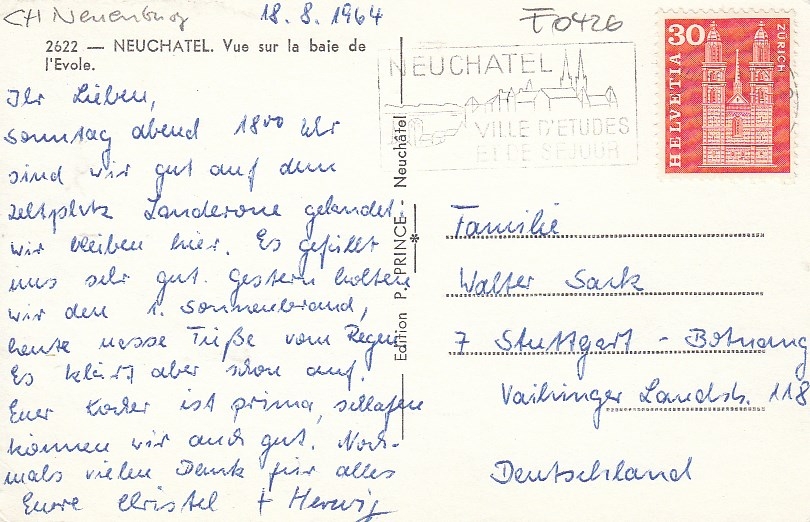 CH Neuenburg
18.8.1964
F0426
2622 — NEUCHATEL. Vue sur la baie de
l'Evole.
Ihr Lieben,
Sonntag abend 18⁰⁰ Uhr
sind wir gut auf dem
Zeltplatz Landerone gelandet.
Wir bleiben hier. Es gefällt
uns sehr gut. Gestern holten
wir den 1. Sonnenbrand,
heute nasse Füße vom Regen
Es klärt aber schon auf.
Euer Kocher ist prima, schlafen
können wir auch gut. Noch-
mals vielen Dank für alles
Eure Christel + Herwig
Edition P. PRINCE - Neuchâtel
NEUCHATEL
VILLE D'ETUDES
ET DE SEJOUR
30
HELVETIA
ZÜRICH
Familie
Walter Sack
7 Stuttgart - Botnang
Vaihinger Landstr. 118
Deutschland